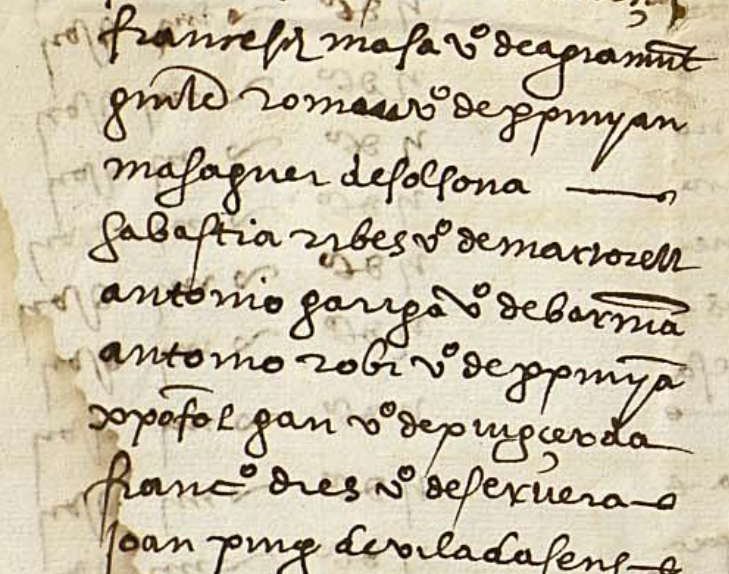 francesch masa vº de agramũt
guilē romeu vº de ppinyan
masaguer de solsona
sabastia ribes vº de martorell
antonio gariga vº de barna
antonio robi vº de ppinya
xpofol gan vº de puigcerda
francº dies vº de servera
joan puig de viladasens